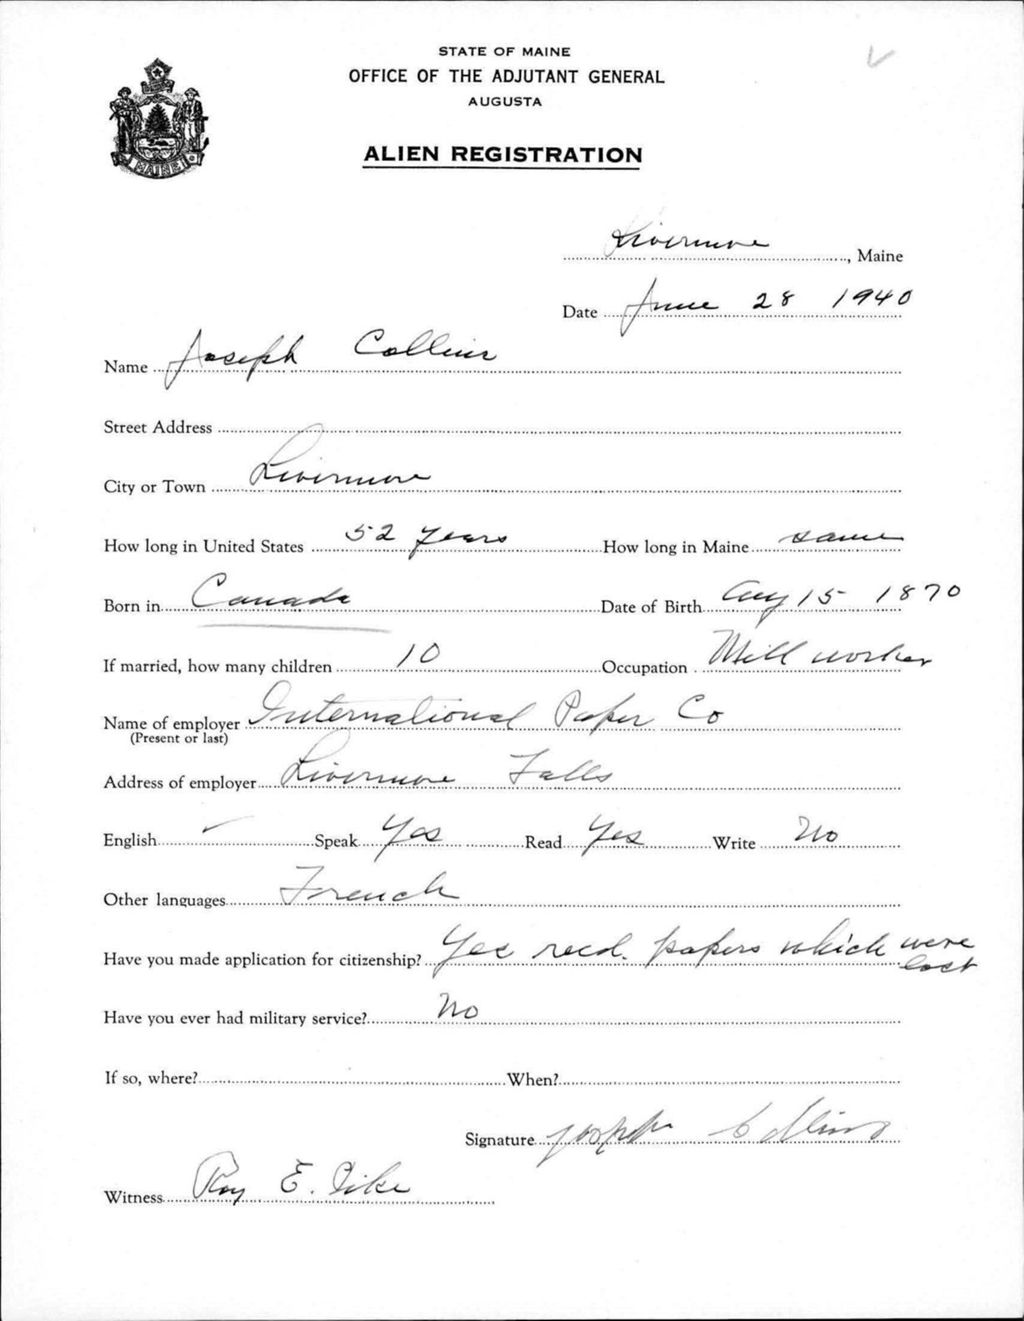 STATE OF MAINE
OFFICE OF THE ADJUTANT GENERAL
AUGUSTA
ALIEN REGISTRATION
MAINE
Livermore, Maine
Date June 28 1940
Name Joseph Collins
Street Address
City or Town Livermore
How long in United States 52 years How long in Maine same
Born in Canada Date of Birth Aug 15 1870
If married, how many children 10 Occupation Mill worker
Name of employer International Paper Co
(Present or last)
Address of employer Livermore Falls
English Speak Yes Read Yes Write No
Other languages French
Have you made application for citizenship? Yes recd. papers which were lost
Have you ever had military service? No
If so, where? When?
Signature Joseph Collins
Witness Roy E. Pike